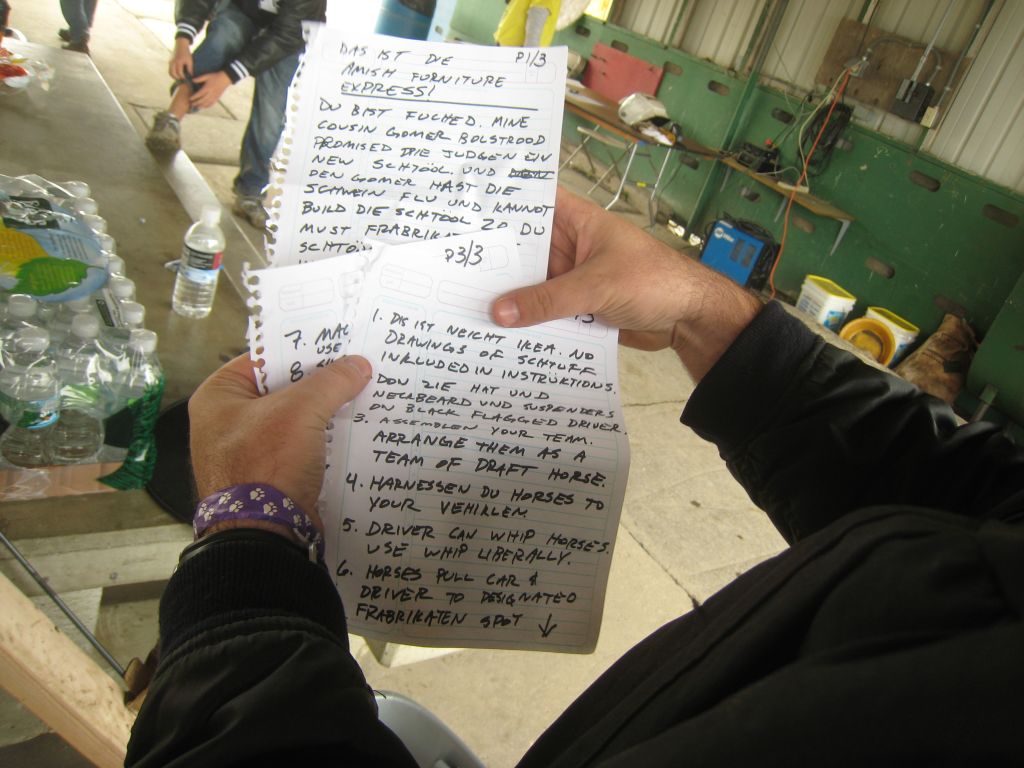 DAS IST DIE P1/3
AMISH FURNITURE
EXPRESS!
DU BIST FUCHED. MINE
COUSIN GOMER BOLSTROOD
PROMISED DIE JUDGEN EIN
NEW SCHTÖÖL, UND
DEN GOMER HAST DIE
SCHWEIN FLU UND KANNOT
BUILD DIE SCHTÖÖL ZO DU
MUST FRABRIKA
SCHTÖÖ
P3/3
7. MAK
USE
8.
1. DIS IST NEICHT IKEA. NO
DRAWINGS OF SCHTUFF
INKLUDED IN INSTRÜKTIONS.
DON ZIE HAT UND
NECKBEARD UND SUSPENDERS
ON BLACK FLAGGED DRIVER.
3. ASSEMBLEN YOUR TEAM.
ARRANGE THEM AS A
TEAM OF DRAFT HORSE.
4. HARNESSEN DU HORSES TO
YOUR VEHIKLEN.
5. DRIVER CAN WHIP HORSES.
USE WHIP LIBERALLY.
6. HORSES PULL CAR &
DRIVER TO DESIGNATED
FRABRIKATEN SPOT ↓